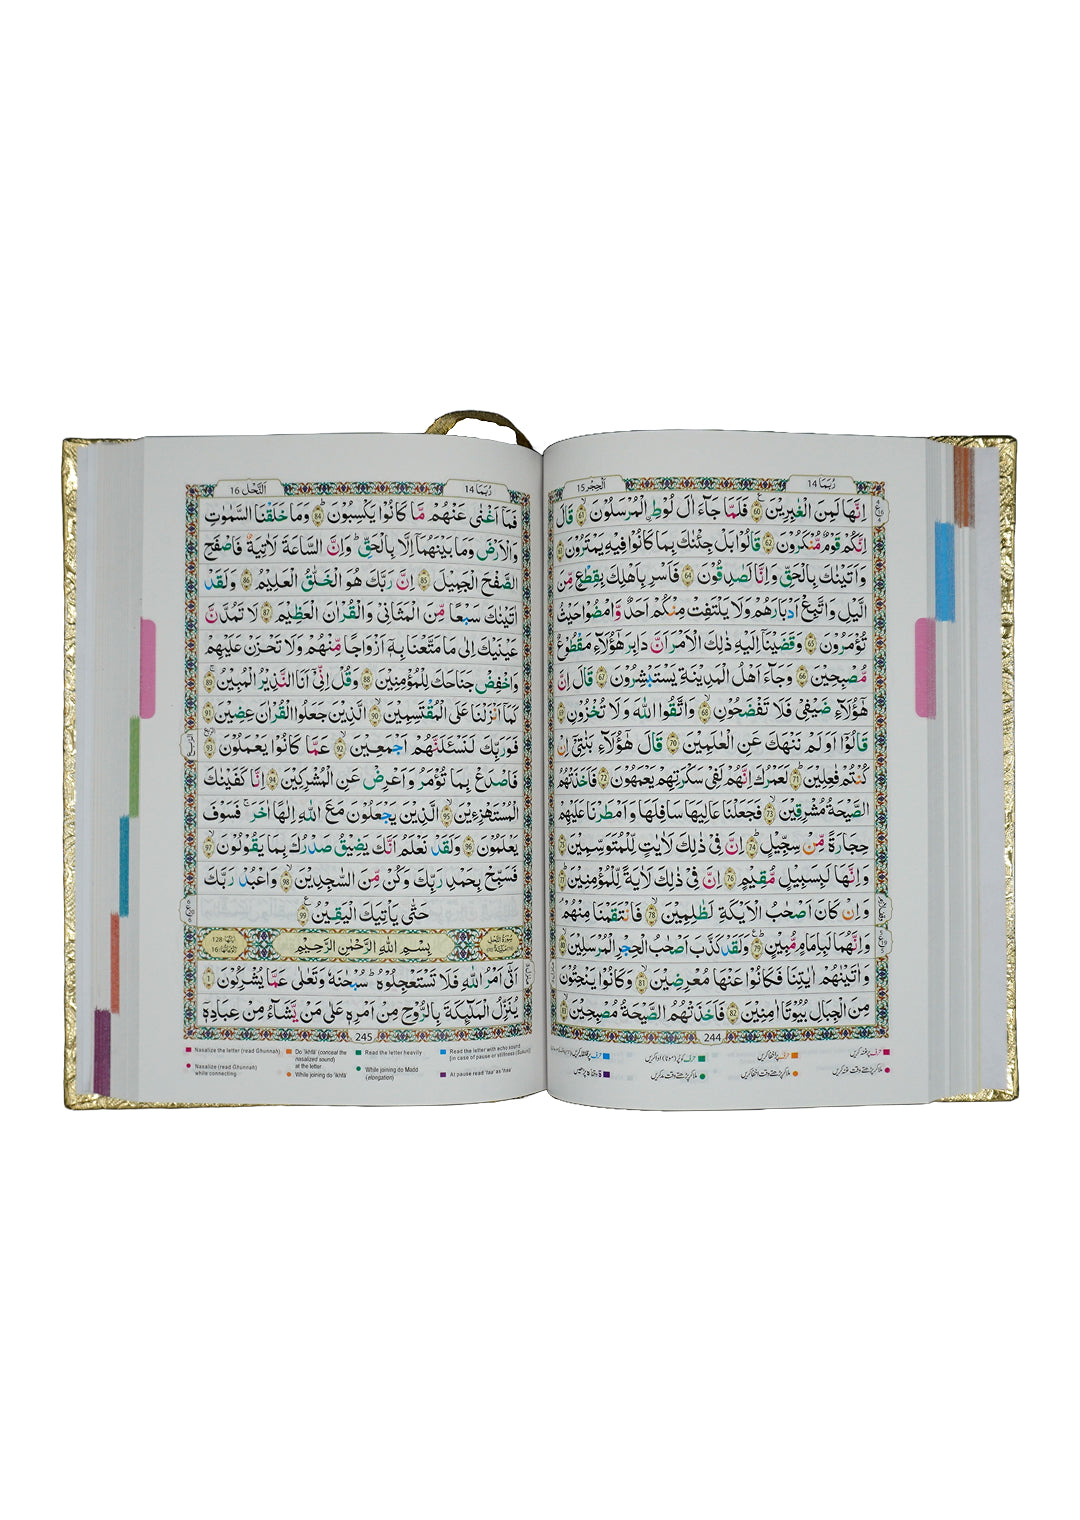 رُبَمَا 14
اَلْحِجْر 15
اِنَّهَا لَمِنَ الْغٰبِرِيْنَ 60 فَلَمَّا جَآءَ اٰلَ لُوْطِ اۨلْمُرْسَلُوْنَ 61 قَالَ
اِنَّكُمْ قَوْمٌ مُّنْكَرُوْنَ 62 قَالُوْا بَلْ جِئْنٰكَ بِمَا كَانُوْا فِيْهِ يَمْتَرُوْنَ 63
وَاَتَيْنٰكَ بِالْحَقِّ وَاِنَّا لَصٰدِقُوْنَ 64 فَاَسْرِ بِاَهْلِكَ بِقِطْعٍ مِّنَ
الَّيْلِ وَاتَّبِعْ اَدْبَارَهُمْ وَلَا يَلْتَفِتْ مِنْكُمْ اَحَدٌ وَّامْضُوْا حَيْثُ
تُؤْمَرُوْنَ 65 وَقَضَيْنَآ اِلَيْهِ ذٰلِكَ الْاَمْرَ اَنَّ دَابِرَ هٰٓؤُلَآءِ مَقْطُوْعٌ
مُّصْبِحِيْنَ 66 وَجَآءَ اَهْلُ الْمَدِيْنَةِ يَسْتَبْشِرُوْنَ 67 قَالَ اِنَّ
هٰٓؤُلَآءِ ضَيْفِيْ فَلَا تَفْضَحُوْنِ 68 وَاتَّقُوا اللّٰهَ وَلَا تُخْزُوْنِ 69
قَالُوْٓا اَوَلَمْ نَنْهَكَ عَنِ الْعٰلَمِيْنَ 70 قَالَ هٰٓؤُلَآءِ بَنٰتِيْٓ اِنْ
كُنْتُمْ فٰعِلِيْنَ 71 لَعَمْرُكَ اِنَّهُمْ لَفِيْ سَكْرَتِهِمْ يَعْمَهُوْنَ 72 فَاَخَذَتْهُمُ
الصَّيْحَةُ مُشْرِقِيْنَ 73 فَجَعَلْنَا عَالِيَهَا سَافِلَهَا وَاَمْطَرْنَا عَلَيْهِمْ
حِجَارَةً مِّنْ سِجِّيْلٍ 74 اِنَّ فِيْ ذٰلِكَ لَاٰيٰتٍ لِّلْمُتَوَسِّمِيْنَ 75
وَاِنَّهَا لَبِسَبِيْلٍ مُّقِيْمٍ 76 اِنَّ فِيْ ذٰلِكَ لَاٰيَةً لِّلْمُؤْمِنِيْنَ 77
وَاِنْ كَانَ اَصْحٰبُ الْاَيْكَةِ لَظٰلِمِيْنَ 78 فَانْتَقَمْنَا مِنْهُمْ
وَاِنَّهُمَا لَبِاِمَامٍ مُّبِيْنٍ 79 وَلَقَدْ كَذَّبَ اَصْحٰبُ الْحِجْرِ الْمُرْسَلِيْنَ 80
وَاٰتَيْنٰهُمْ اٰيٰتِنَا فَكَانُوْا عَنْهَا مُعْرِضِيْنَ 81 وَكَانُوْا يَنْحِتُوْنَ
مِنَ الْجِبَالِ بُيُوْتًا اٰمِنِيْنَ 82 فَاَخَذَتْهُمُ الصَّيْحَةُ مُصْبِحِيْنَ 83
244
رُبَمَا 14
اَلنَّحْل 16
فَمَآ اَغْنٰى عَنْهُمْ مَّا كَانُوْا يَكْسِبُوْنَ 84 وَمَا خَلَقْنَا السَّمٰوٰتِ
وَالْاَرْضَ وَمَا بَيْنَهُمَآ اِلَّا بِالْحَقِّ وَاِنَّ السَّاعَةَ لَاٰتِيَةٌ فَاصْفَحِ
الصَّفْحَ الْجَمِيْلَ 85 اِنَّ رَبَّكَ هُوَ الْخَلّٰقُ الْعَلِيْمُ 86 وَلَقَدْ
اٰتَيْنٰكَ سَبْعًا مِّنَ الْمَثَانِيْ وَالْقُرْاٰنَ الْعَظِيْمَ 87 لَا تَمُدَّنَّ
عَيْنَيْكَ اِلٰى مَا مَتَّعْنَا بِهٖٓ اَزْوَاجًا مِّنْهُمْ وَلَا تَحْزَنْ عَلَيْهِمْ
وَاخْفِضْ جَنَاحَكَ لِلْمُؤْمِنِيْنَ 88 وَقُلْ اِنِّيْٓ اَنَا النَّذِيْرُ الْمُبِيْنُ 89
كَمَآ اَنْزَلْنَا عَلَى الْمُقْتَسِمِيْنَ 90 الَّذِيْنَ جَعَلُوا الْقُرْاٰنَ عِضِيْنَ 91
فَوَرَبِّكَ لَنَسْـَٔلَنَّهُمْ اَجْمَعِيْنَ 92 عَمَّا كَانُوْا يَعْمَلُوْنَ 93
فَاصْدَعْ بِمَا تُؤْمَرُ وَاَعْرِضْ عَنِ الْمُشْرِكِيْنَ 94 اِنَّا كَفَيْنٰكَ
الْمُسْتَهْزِءِيْنَ 95 الَّذِيْنَ يَجْعَلُوْنَ مَعَ اللّٰهِ اِلٰهًا اٰخَرَ فَسَوْفَ
يَعْلَمُوْنَ 96 وَلَقَدْ نَعْلَمُ اَنَّكَ يَضِيْقُ صَدْرُكَ بِمَا يَقُوْلُوْنَ 97
فَسَبِّحْ بِحَمْدِ رَبِّكَ وَكُنْ مِّنَ السّٰجِدِيْنَ 98 وَاعْبُدْ رَبَّكَ
حَتّٰى يَاْتِيَكَ الْيَقِيْنُ 99
بِسْمِ اللّٰهِ الرَّحْمٰنِ الرَّحِيْمِ
اَتٰٓى اَمْرُ اللّٰهِ فَلَا تَسْتَعْجِلُوْهُ سُبْحٰنَهٗ وَتَعٰلٰى عَمَّا يُشْرِكُوْنَ 1
يُنَزِّلُ الْمَلٰٓئِكَةَ بِالرُّوْحِ مِنْ اَمْرِهٖ عَلٰى مَنْ يَّشَآءُ مِنْ عِبَادِهٖٓ
245
Nasalize the letter (read Ghunnah)
Do 'ikhfa' (conceal the nasalized sound) at the letter
Read the letter heavily
Read the letter with echo sound (in case of pause or stillness (Sukun))
Nasalize (read Ghunnah) while connecting
While joining do 'ikhfa'
While joining do Madd (elongation)
At pause read 'taa' as 'haa'